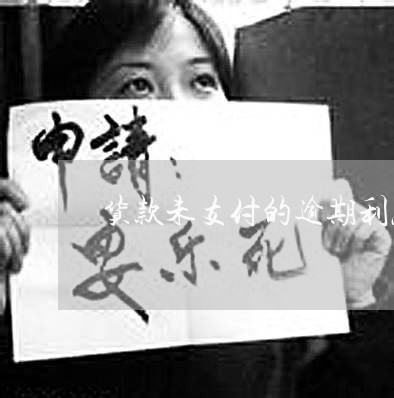 申請：
贷款未支付的逾期利
安乐死